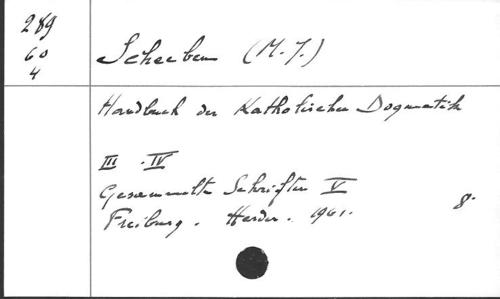 289
60
4
Scheeben (M. J.)
Handbuch der Katholischen Dogmatik
III . IV
Gesammelte Schriften V
Freiburg . Herder . 1961.
8°